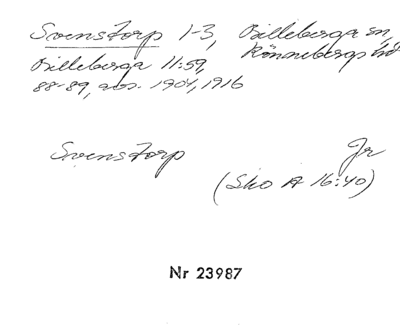 Svenstorp 1-3, Billeberga sn,
Rönnebergs hd
Billeberga 11:59,
88-89, avs. 1904, 1916
Svenstorp Jr
(Sko A 16:40)
Nr 23987